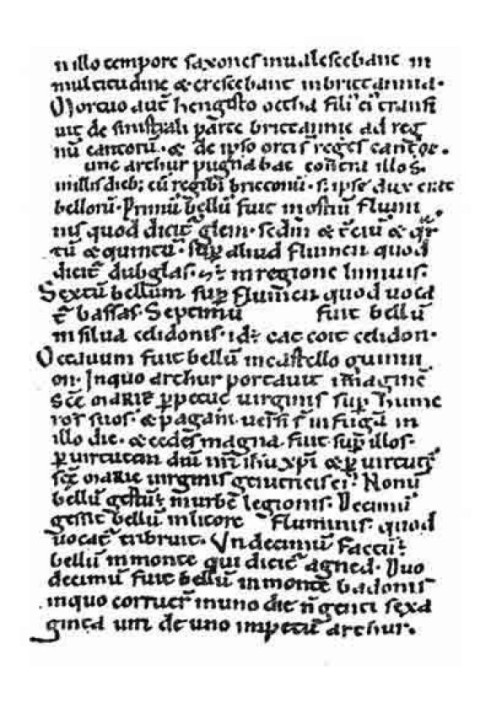 n illo tempore saxones inualescebant in
multitudine & crescebant in brittannia.
Mortuo aut̄ hengisto octha fili' ei' transi
uit de sinist̄ali parte brittannie ad reg
nū cantorū. & de ipso orti s̄ reges cantoꝛ.
unc arthur pugnabat contra illos.
in illis dieb; cū regib; brittonū. s; ipse dux erat
bellorū. Primū bellū fuit in ostiū flumi
nis quod dicit̄ glein. sc̄dm & t̄ciū & qr̄
tū & quintū. sup̄ aliud flumen quod
dicit̄ dubglas. & ē in regione linnuis.
Sextū bellum sup̄ flumen quod uoca
t̄ bassas. Septimū fuit bellū
in silua celidonis. id ē cat coit celidon.
Octauum fuit bellū in castello guinni
on. In quo arthur portauit imaginē
sc̄e marie ꝑpetue uirginis sup̄ hume
ros suos. & pagani uersi s̄ in fugā in
illo die. & cedes magna fuit sup̄ illos.
ꝑ uirtutem dn̄i nr̄i ih̄u xp̄i & ꝑ uirtutē
sc̄e marie uirginis genitricis ei'. Nonū
bellū gestū ē in urbe legionis. Decimū
gessit bellū in litore fluminis. quod
uocat̄ tribruit. Undecimū factū ē
bellū in monte qui dicit̄ agned. Duo
decimū fuit bellū in monte badonis
in quo corruer̄ in uno die n̄genti sexa
ginta uiri de uno impetū arthur.